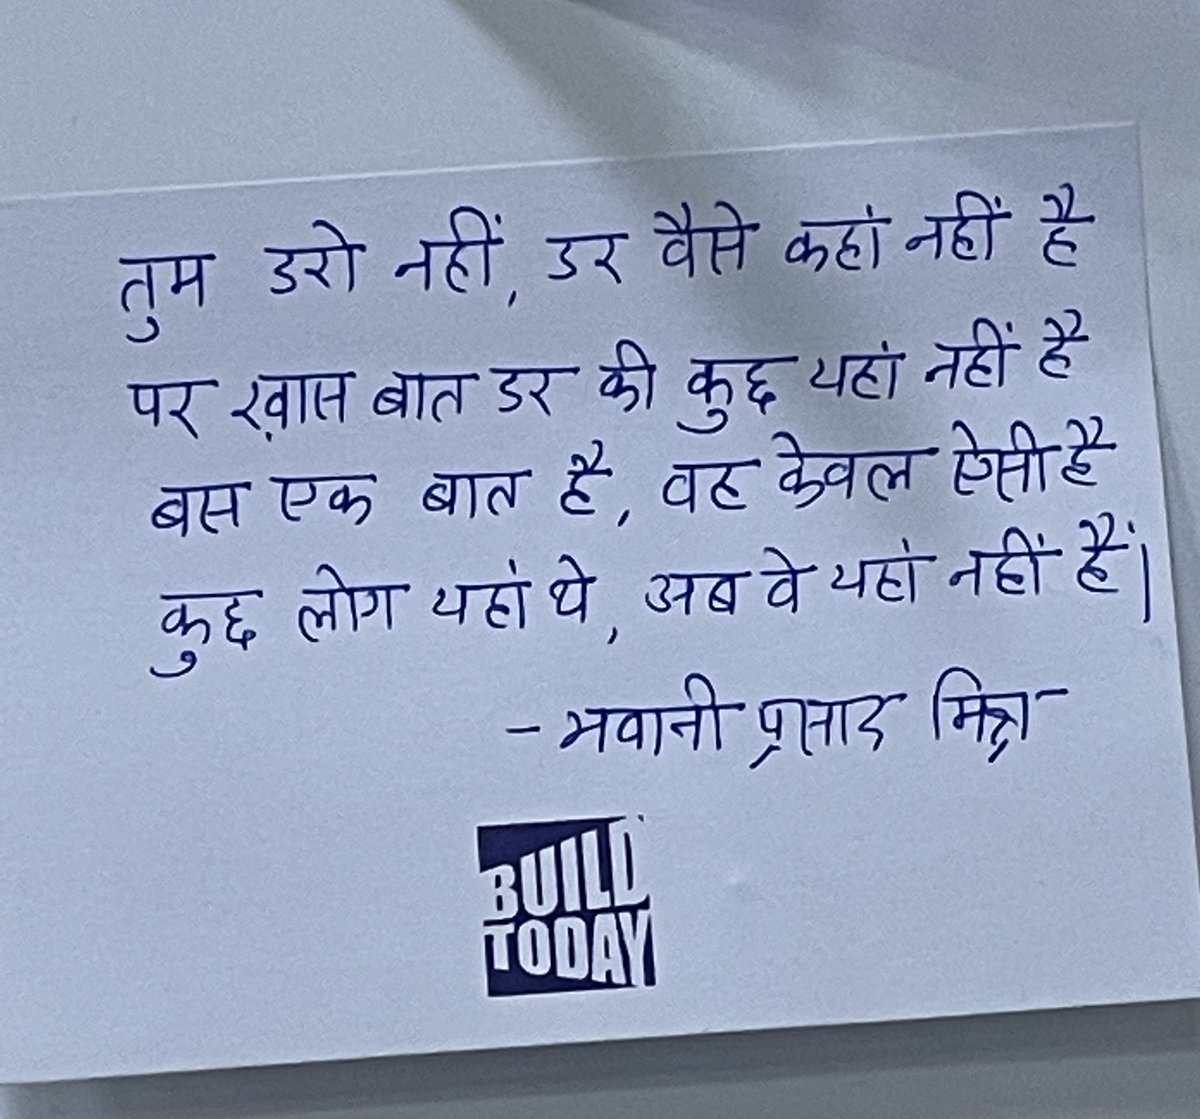 तुम डरो नहीं, डर वैसे कहां नहीं है
पर ख़ास बात डर की कुछ यहां नहीं है
बस एक बात है, वह केवल ऐसी है
कुछ लोग यहां थे, अब वे यहां नहीं हैं।
- भवानी प्रसाद मिश्र
BUILD
TODAY